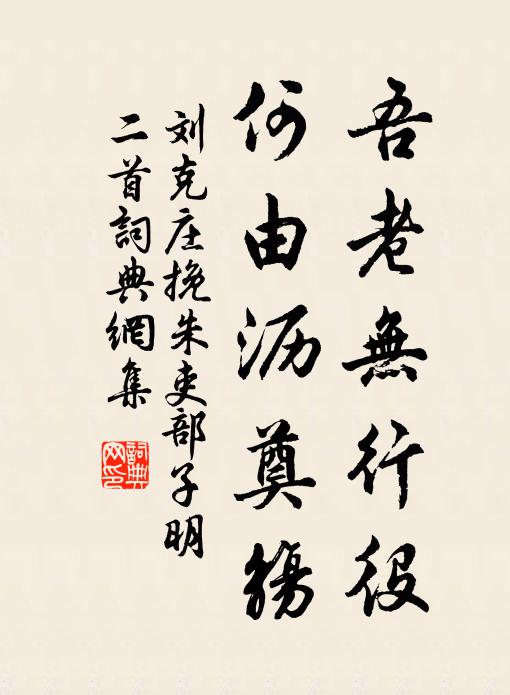 吾老無行役
何由沥奠觴
刘克庄挽朱吏部子明
二首詞典網集
詞典網印